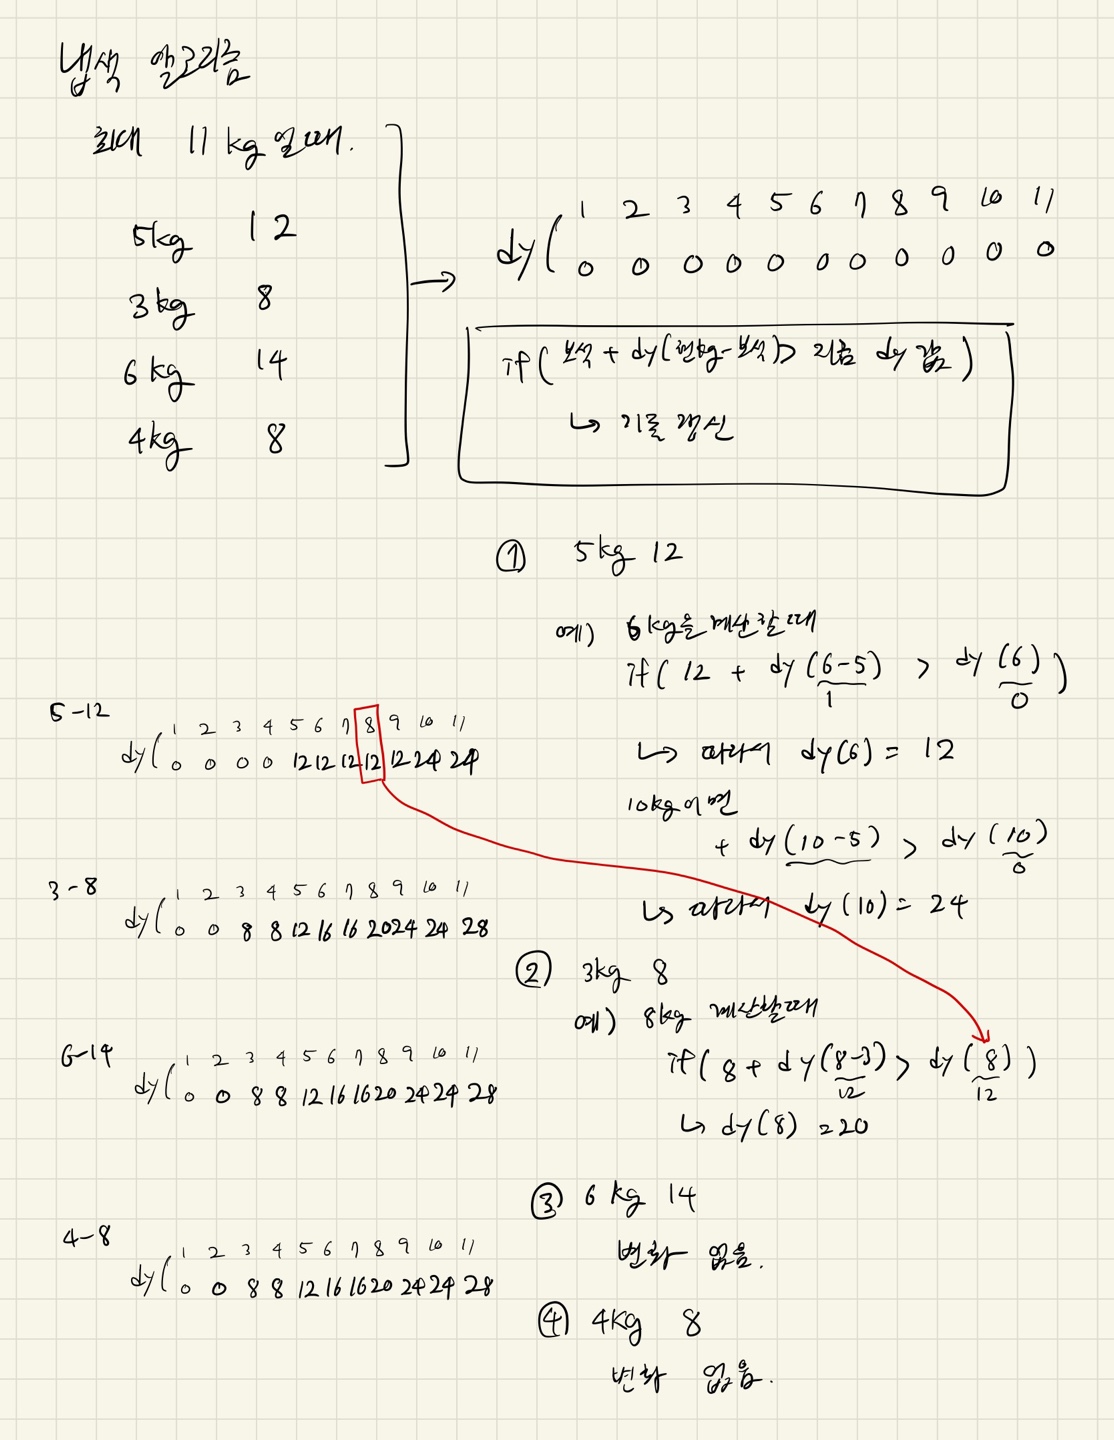 냅색 알고리즘
최대 11kg 일때.
5kg 12
3kg 8
6kg 14
4kg 8
1 2 3 4 5 6 7 8 9 10 11
dy( 0 0 0 0 0 0 0 0 0 0 0
if( 보석 + dy(현kg-보석)> 지금 dy 값 )
↳ 기록 갱신
① 5kg 12
예) 6kg을 계산할때
if( 12 + dy(6-5) > dy(6) )
1 0
↳ 따라서 dy(6) = 12
10kg이면
+ dy(10-5) > dy(10)
0
↳ 따라서 dy(10) = 24
② 3kg 8
예) 8kg 계산할때
if( 8 + dy(8-3) > dy(8) )
12 12
↳ dy(8) = 20
③ 6kg 14
변화 없음.
④ 4kg 8
변화 없음.
5-12
1 2 3 4 5 6 7 8 9 10 11
dy( 0 0 0 0 12 12 12 12 12 24 24
3-8
1 2 3 4 5 6 7 8 9 10 11
dy( 0 0 8 8 12 16 16 20 24 24 28
6-14
1 2 3 4 5 6 7 8 9 10 11
dy( 0 0 8 8 12 16 16 20 24 24 28
4-8
1 2 3 4 5 6 7 8 9 10 11
dy( 0 0 8 8 12 16 16 20 24 24 28